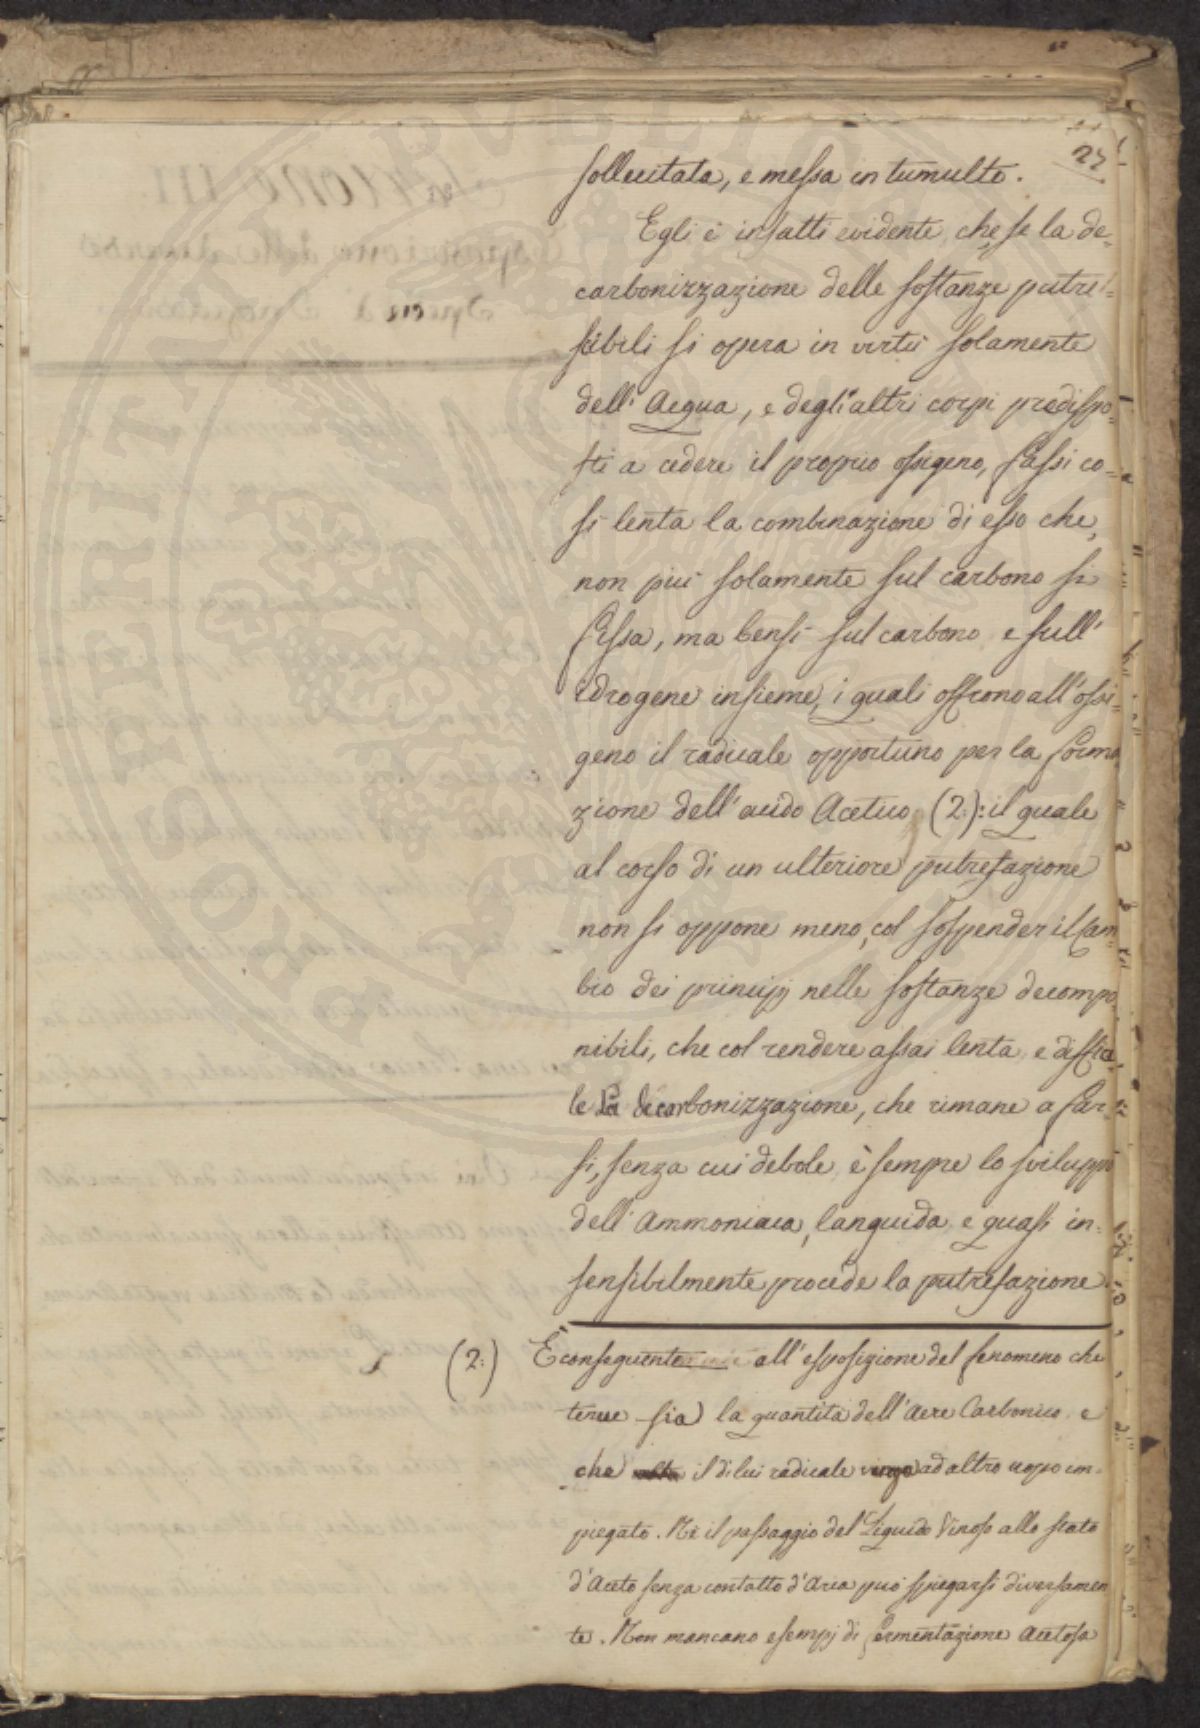 27
sollecitata, e messa in tumulto.
Egli è infatti evidente, che se la de-
carbonizzazione delle sostanze putre-
scibili si opera in virtù solamente
dell'Acqua, e degli altri corpi predispo-
sti a cedere il proprio ossigeno, fassi co-
sì lenta la combinazione di esso che,
non più solamente sul carbono si
fissa, ma bensì sul carbono e sull'
idrogene insieme, i quali offrono all'ossi-
geno il radicale opportuno per la forma
zione dell'acido Acetico (2.): il quale
al corso di un ulteriore putrefazione
non si oppone meno, col sospender il cam-
bio dei principj nelle sostanze decompo
nibili, che col rendere assai lenta, e diffici-
le la decarbonizzazione, che rimane a far-
si, senza cui debole è sempre lo sviluppo
dell'Ammoniaca, languida e quasi in-
sensibilmente procede la putrefazione
(2.) È conseguente all'esposizione del fenomeno che
tenue sia la quantità dell'Aere Carbonico e
che il di lui radicale venga ad altro uopo im-
piegato. Nè il passaggio del Liquido Vinoso allo stato
d'Aceto senza contatto d'Aria può spiegarsi diversamen
te. Non mancano esempj di fermentazione Acetosa
PROSPERITÀ PUBLICA